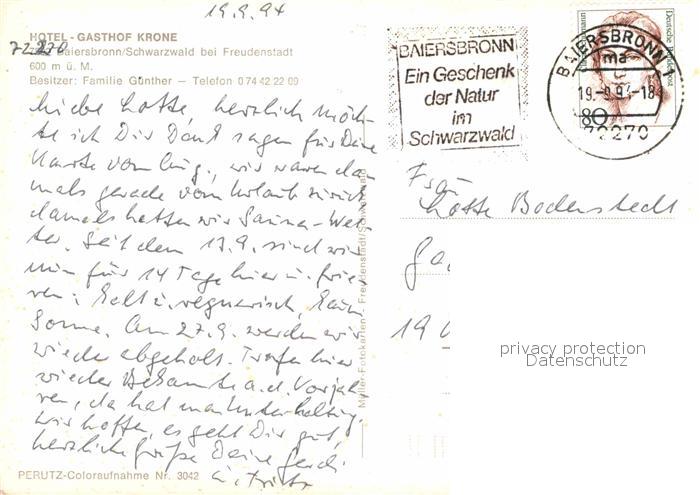 19.9.94
HOTEL - GASTHOF KRONE
72270 Baiersbronn/Schwarzwald bei Freudenstadt
600 m ü. M.
Besitzer: Familie Günther — Telefon 0 74 42 22 09
Liebe Lotte, herzlich möch-
te ich Dir Dank sagen für Deine
Karte vom Aug., wir waren da-
mals gerade vom Urlaub zurück
damals hatten wir Sauna-Wet-
ter. Seit dem 13.9. sind wir
nun für 14 Tage hier u. frie-
ren: kalt u. regnerisch, kaum
Sonne. Am 27.9. werden wir
wieder abgeholt. Trafen hier
wieder Bekannte a. d. Vorjah-
ren, da hat man Unterhaltung.
Wir hoffen, es geht Dir gut,
herzliche Grüße Deine
u. Fritz
PERUTZ-Coloraufnahme Nr. 3042
Müller-Fotokarten - Freudenstadt/Schwarzwald
BAIERSBRONN
Ein Geschenk
der Natur
im
Schwarzwald
BAIERSBRONN 1
ma
19.-9.94-18
72270
80
Deutsche Bundespost
Frau
Lotte Bodenstedt
privacy protection
Datenschutz